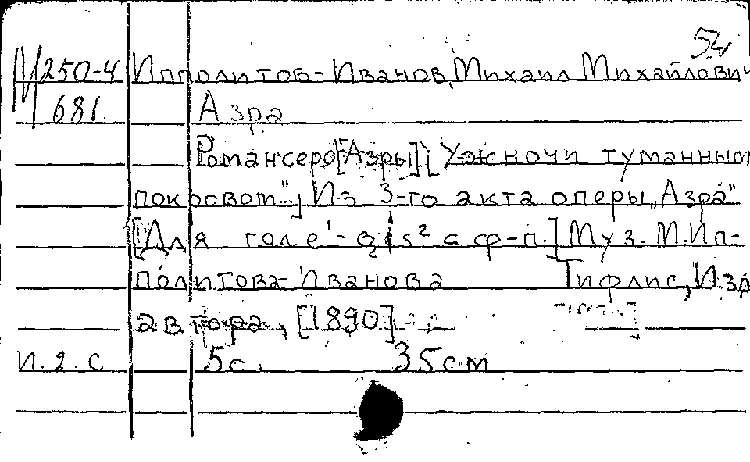 54
М 250-4 Ипполитов-Иванов, Михаил Михайлович
681 Азра
Романсеро [Азры] [„Уж ночи туманным
покровом"; Из 3-го акта оперы „Азра"
[Для гол. e¹-gis² с ф-п.] Муз. М. Ип-
политова-Иванова Тифлис, Изд
автора, [1890]
И. 2. С 5с. 35см